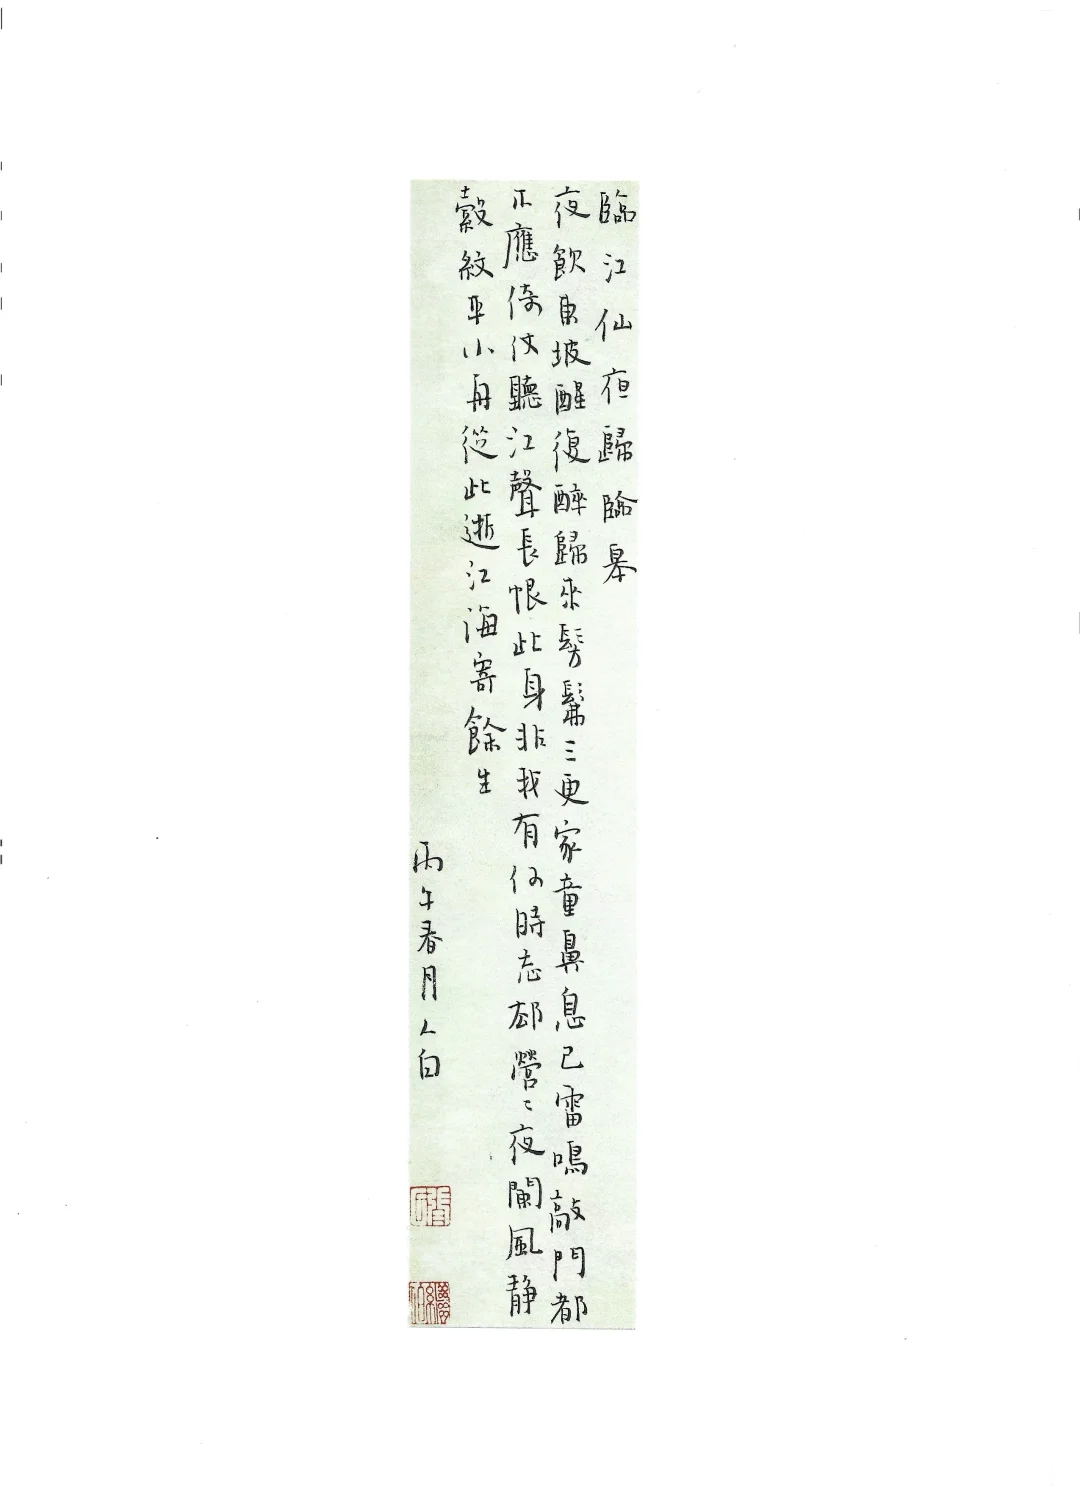 臨江仙夜歸臨皋
夜飲東坡醒復醉歸來髣髴三更家童鼻息已雷鳴敲門都
不應倚仗聽江聲長恨此身非我有何時忘卻營〻夜闌風靜
縠紋平小舟從此逝江海寄餘生
丙午春月人白